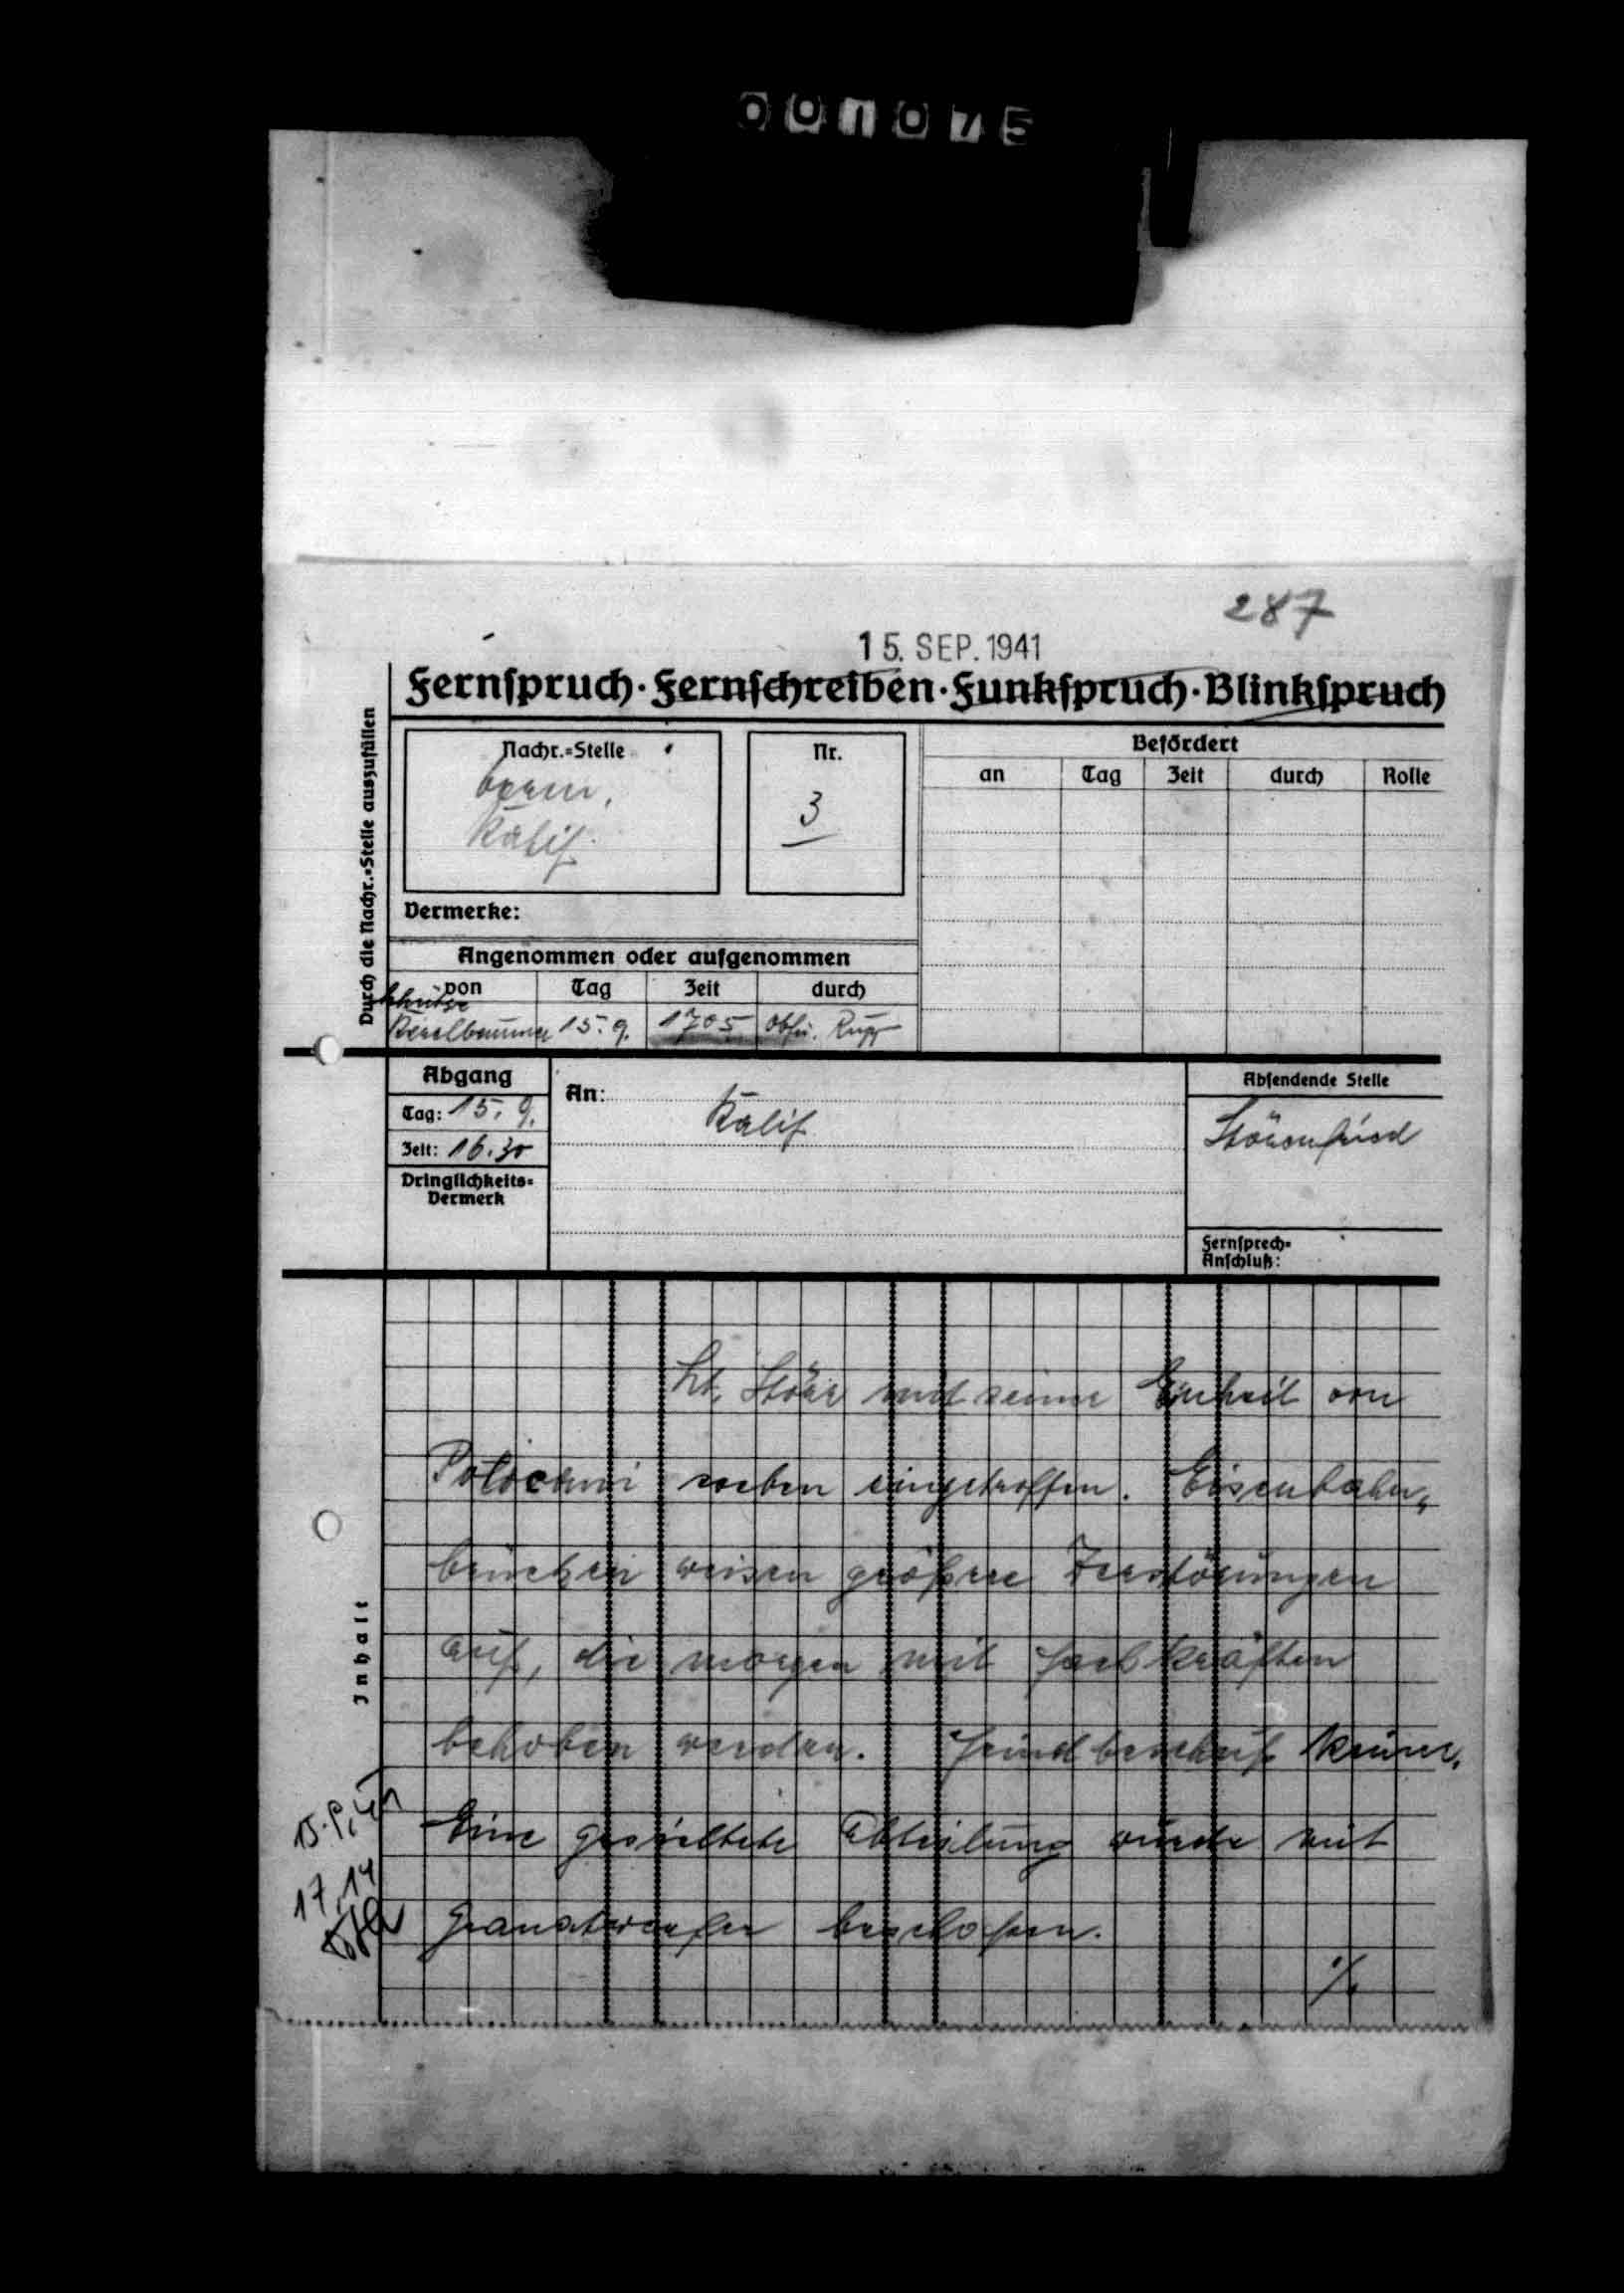 001075
287
15. SEP. 1941
Fernspruch · Fernschreiben · Funkspruch · Blinkspruch
Durch die Nachr.=Stelle auszufüllen
Nachr.=Stelle
Kalif.
Nr.
3
Befördert
an Tag Zeit durch Rolle
Vermerke:
Angenommen oder aufgenommen
von Tag Zeit durch
15. 9. 1705 Rupp
Abgang
Tag: 15. 9.
Zeit: 16.30
Dringlichkeits=
Vermerk
An:
Kalif
Absendende Stelle
Störenfried
Fernsprech=
Anschluß:
Inhalt
Lt. Störr und seine Einheit von
Potocani soeben eingetroffen. Eisenbahn„
brücken weisen größere Zerstörungen
auf, die morgen mit Fachkräften
behoben werden. Feindbeschuß keiner.
Eine gesichtete Abteilung wurde mit
Granatwerfer beschoßen.
17,14
./.